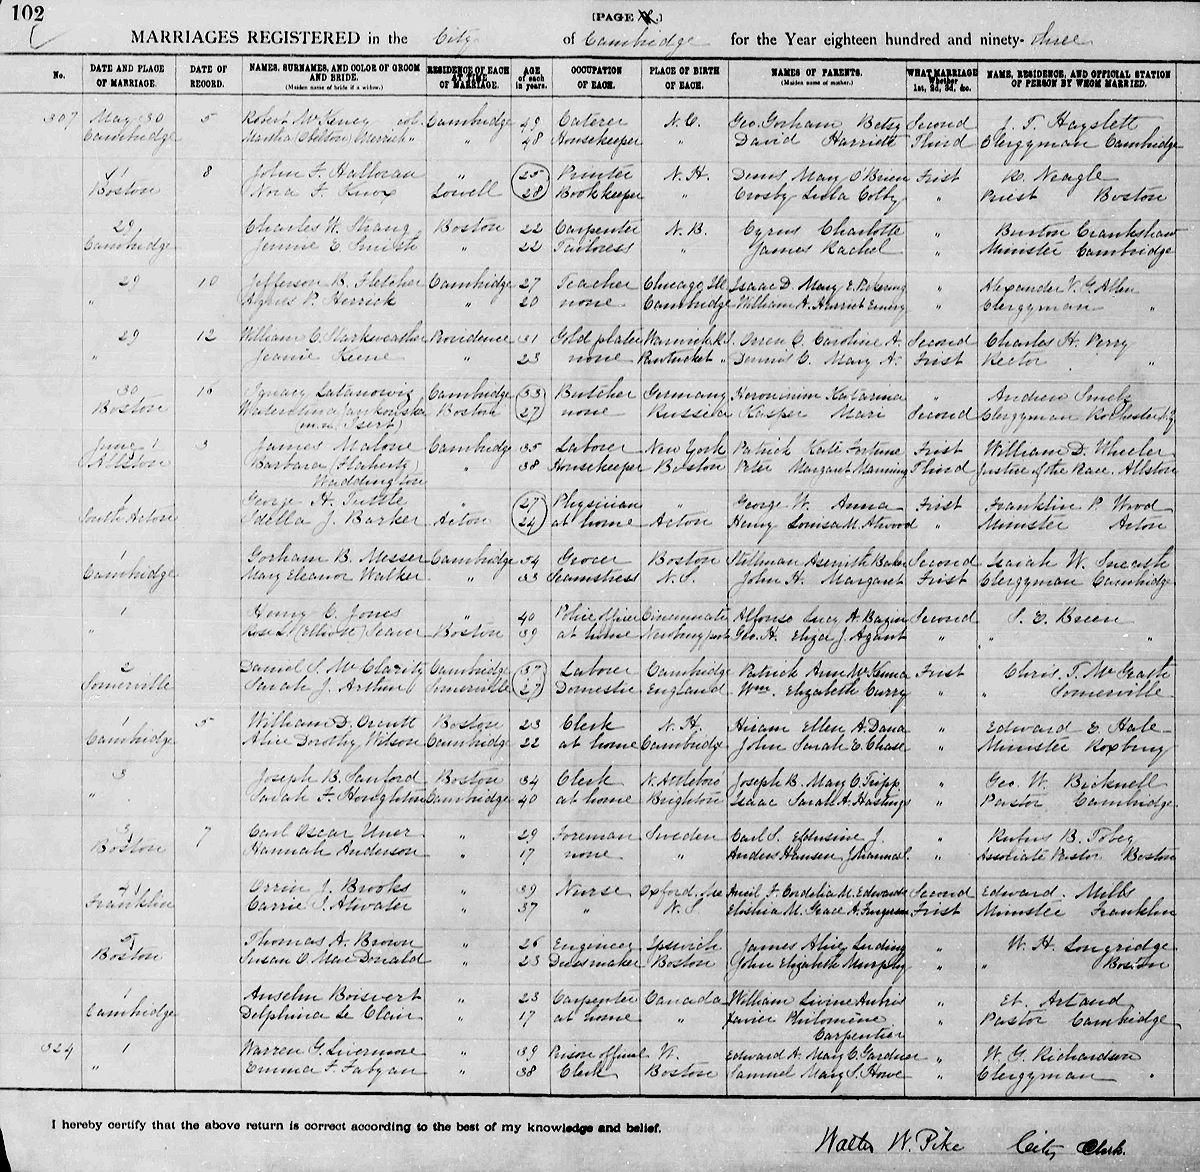 102
[PAGE .]
MARRIAGES REGISTERED in the City of Cambridge for the Year eighteen hundred and ninety-three
No. DATE AND PLACE OF MARRIAGE. DATE OF RECORD. NAMES, SURNAMES, AND COLOR OF GROOM AND BRIDE. (Maiden name of bride if a widow.) RESIDENCE OF EACH AT TIME OF MARRIAGE. AGE of each in years. OCCUPATION OF EACH. PLACE OF BIRTH OF EACH. NAMES OF PARENTS. (Maiden name of mother.) WHAT MARRIAGE Whether 1st, 2d, 3d, &c. NAME, RESIDENCE, AND OFFICIAL STATION OF PERSON BY WHOM MARRIED.
307 May 30 5 Robert McKeney col Cambridge 49 Caterer N.C. Geo. Gorham Betsy Second J. T. Hayslett
Cambridge Martha (Skelton) Merrick " " 48 Housekeeper " David Harriett Third Clergyman Cambridge
1 8 John F. Halloran " 25 Printer N.H. Denis Mary O'Brien First R. Neagle
Boston Nora F. Knox Lowell 28 Bookkeeper " Crosby Lula Colby " Priest Boston
29 Charles W. Strang Boston 22 Carpenter N.B. Cyrus Charlotte " Burton Crankshaw
Cambridge Jennie E. Smith " 22 Tailoress " James Rachel " Minister Cambridge
29 10 Jefferson B. Fletcher Cambridge 27 Teacher Chicago Ill Isaac D. Mary E. Pickering " Alexander V. G. Allen
" Agnes P. Herrick " 20 none Cambridge William A. Harriet Emery " Clergyman "
29 12 William C. Starkweather Providence 31 Gold plater Warwick R.I. Orren C. Caroline A. Second Charles H. Perry
" Jennie Keene " 23 none Pawtucket " Dennis C. Mary A. First Rector "
30 16 Ignacy Latanowiz Cambridge 33 Butcher Germany Heronimin Katarina " Andrew
Boston Boston 27 none Russia Kasper Mari Second Clergyman Rochester N.Y.
June 1 3 James Malone Cambridge 35 Laborer New York Patrick Kate Fortune First William D. Wheeler
Allston Barbara (Flaherty) " 38 Housekeeper Boston Peter Margaret Manning Third Justice of the Peace. Allston
Waddington
1 George H. Tuttle " 27 Physician " George W. Anna First Franklin P. Wood
South Acton Idella J. Barker Acton 24 at home Acton Henry Louisa M. Atwood " Minister Acton
1 Gorham B. Messer Cambridge 54 Grocer Boston Stillman Asenith Baker Second Isaiah W. Sneath
Cambridge Mary Eleanor Walker " 33 Seamstress N.S. John H. Margaret First Clergyman Cambridge
1 Henry C. Jones " 40 Police officer Cincinnati Alfonso Lucy A. Bazin Second S. E. Breen
" Rose L. (Ellwose) Seaver Boston 39 at home Newburyport Geo. H. Eliza J. " " "
2 Daniel S. McClarity Cambridge 37 Laborer Cambridge Patrick Ann McKenna First Chris. T. McGrath
Somerville Sarah J. Arthur Somerville 27 Domestic England Wm. Elizabeth Curry " " Somerville
1 5 William D. Orcutt Boston 23 Clerk N.H. Hiram Ellen A. Dana " Edward E. Hale
Cambridge Alice Dorothy Wilson Cambridge 22 at home Cambridge John Sarah E. Chase " Minister Roxbury
3 Joseph B. Sanford Boston 34 Clerk N. Attleboro Joseph B. Mary C. Tripp " Geo. W. Bicknell
" Sarah F. Houghton Cambridge 40 at home Brighton Isaac Sarah A. Hastings " Pastor Cambridge
3 7 Carl Oscar Uner " 29 Foreman Sweden Carl S. J. " Rufus B. Tobey
Boston Hannah Anderson " 17 none " Anders Hansen Johanna L. " Associate Pastor Boston
1 Orrin J. Brooks " 39 Nurse Oxford, Me F. Cordelia M. Edwards Second Edward Mills
Franklin Carrie S. Atwater " 37 " N.S. Elishia M. Grace A. Ferguson First Minister Franklin
5 Thomas A. Brown " 26 Engineer Ipswich James Alice Luding " W. H. Longridge
Boston Susan C. MacDonald " 23 Dressmaker Boston John Elizabeth Murphy " " Boston
1 Anselm Boisvert " 23 Carpenter Canada William Livine Aubrie " El. Artaud
Cambridge Delphina Le Clair " 17 at home " Xavier Philomène " Pastor Cambridge
Carpentier
324 1 Warren G. Livermore " 39 Prison official Vt. Edward A. Mary C. Gardner " W. G. Richardson
" Emma F. Fabyan " 38 Clerk Boston Samuel Mary S. Howe " Clergyman "
I hereby certify that the above return is correct according to the best of my knowledge and belief.
Walter W. Pike City Clerk.